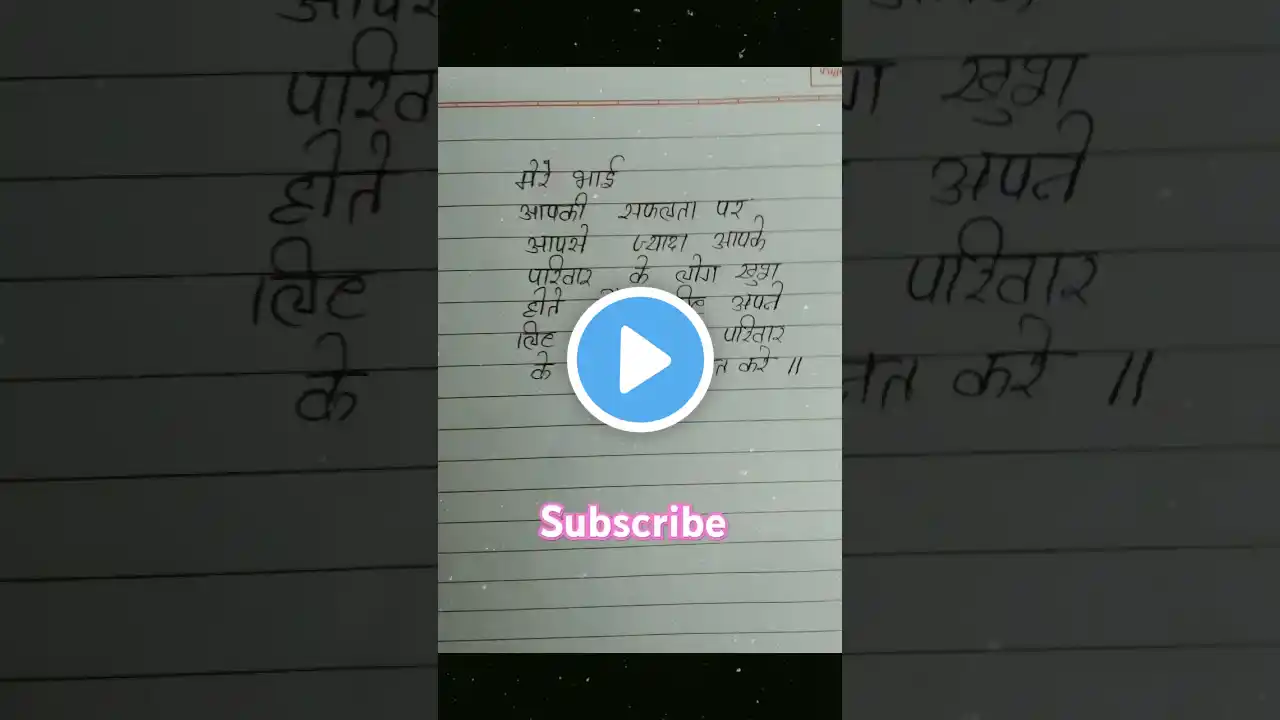 मेरे भाई
आपकी सफलता पर
आपसे ज्यादा आपके
परिवार के लोग खुश
होते अपने
लिए परिवार
के करे ॥
Subscribe